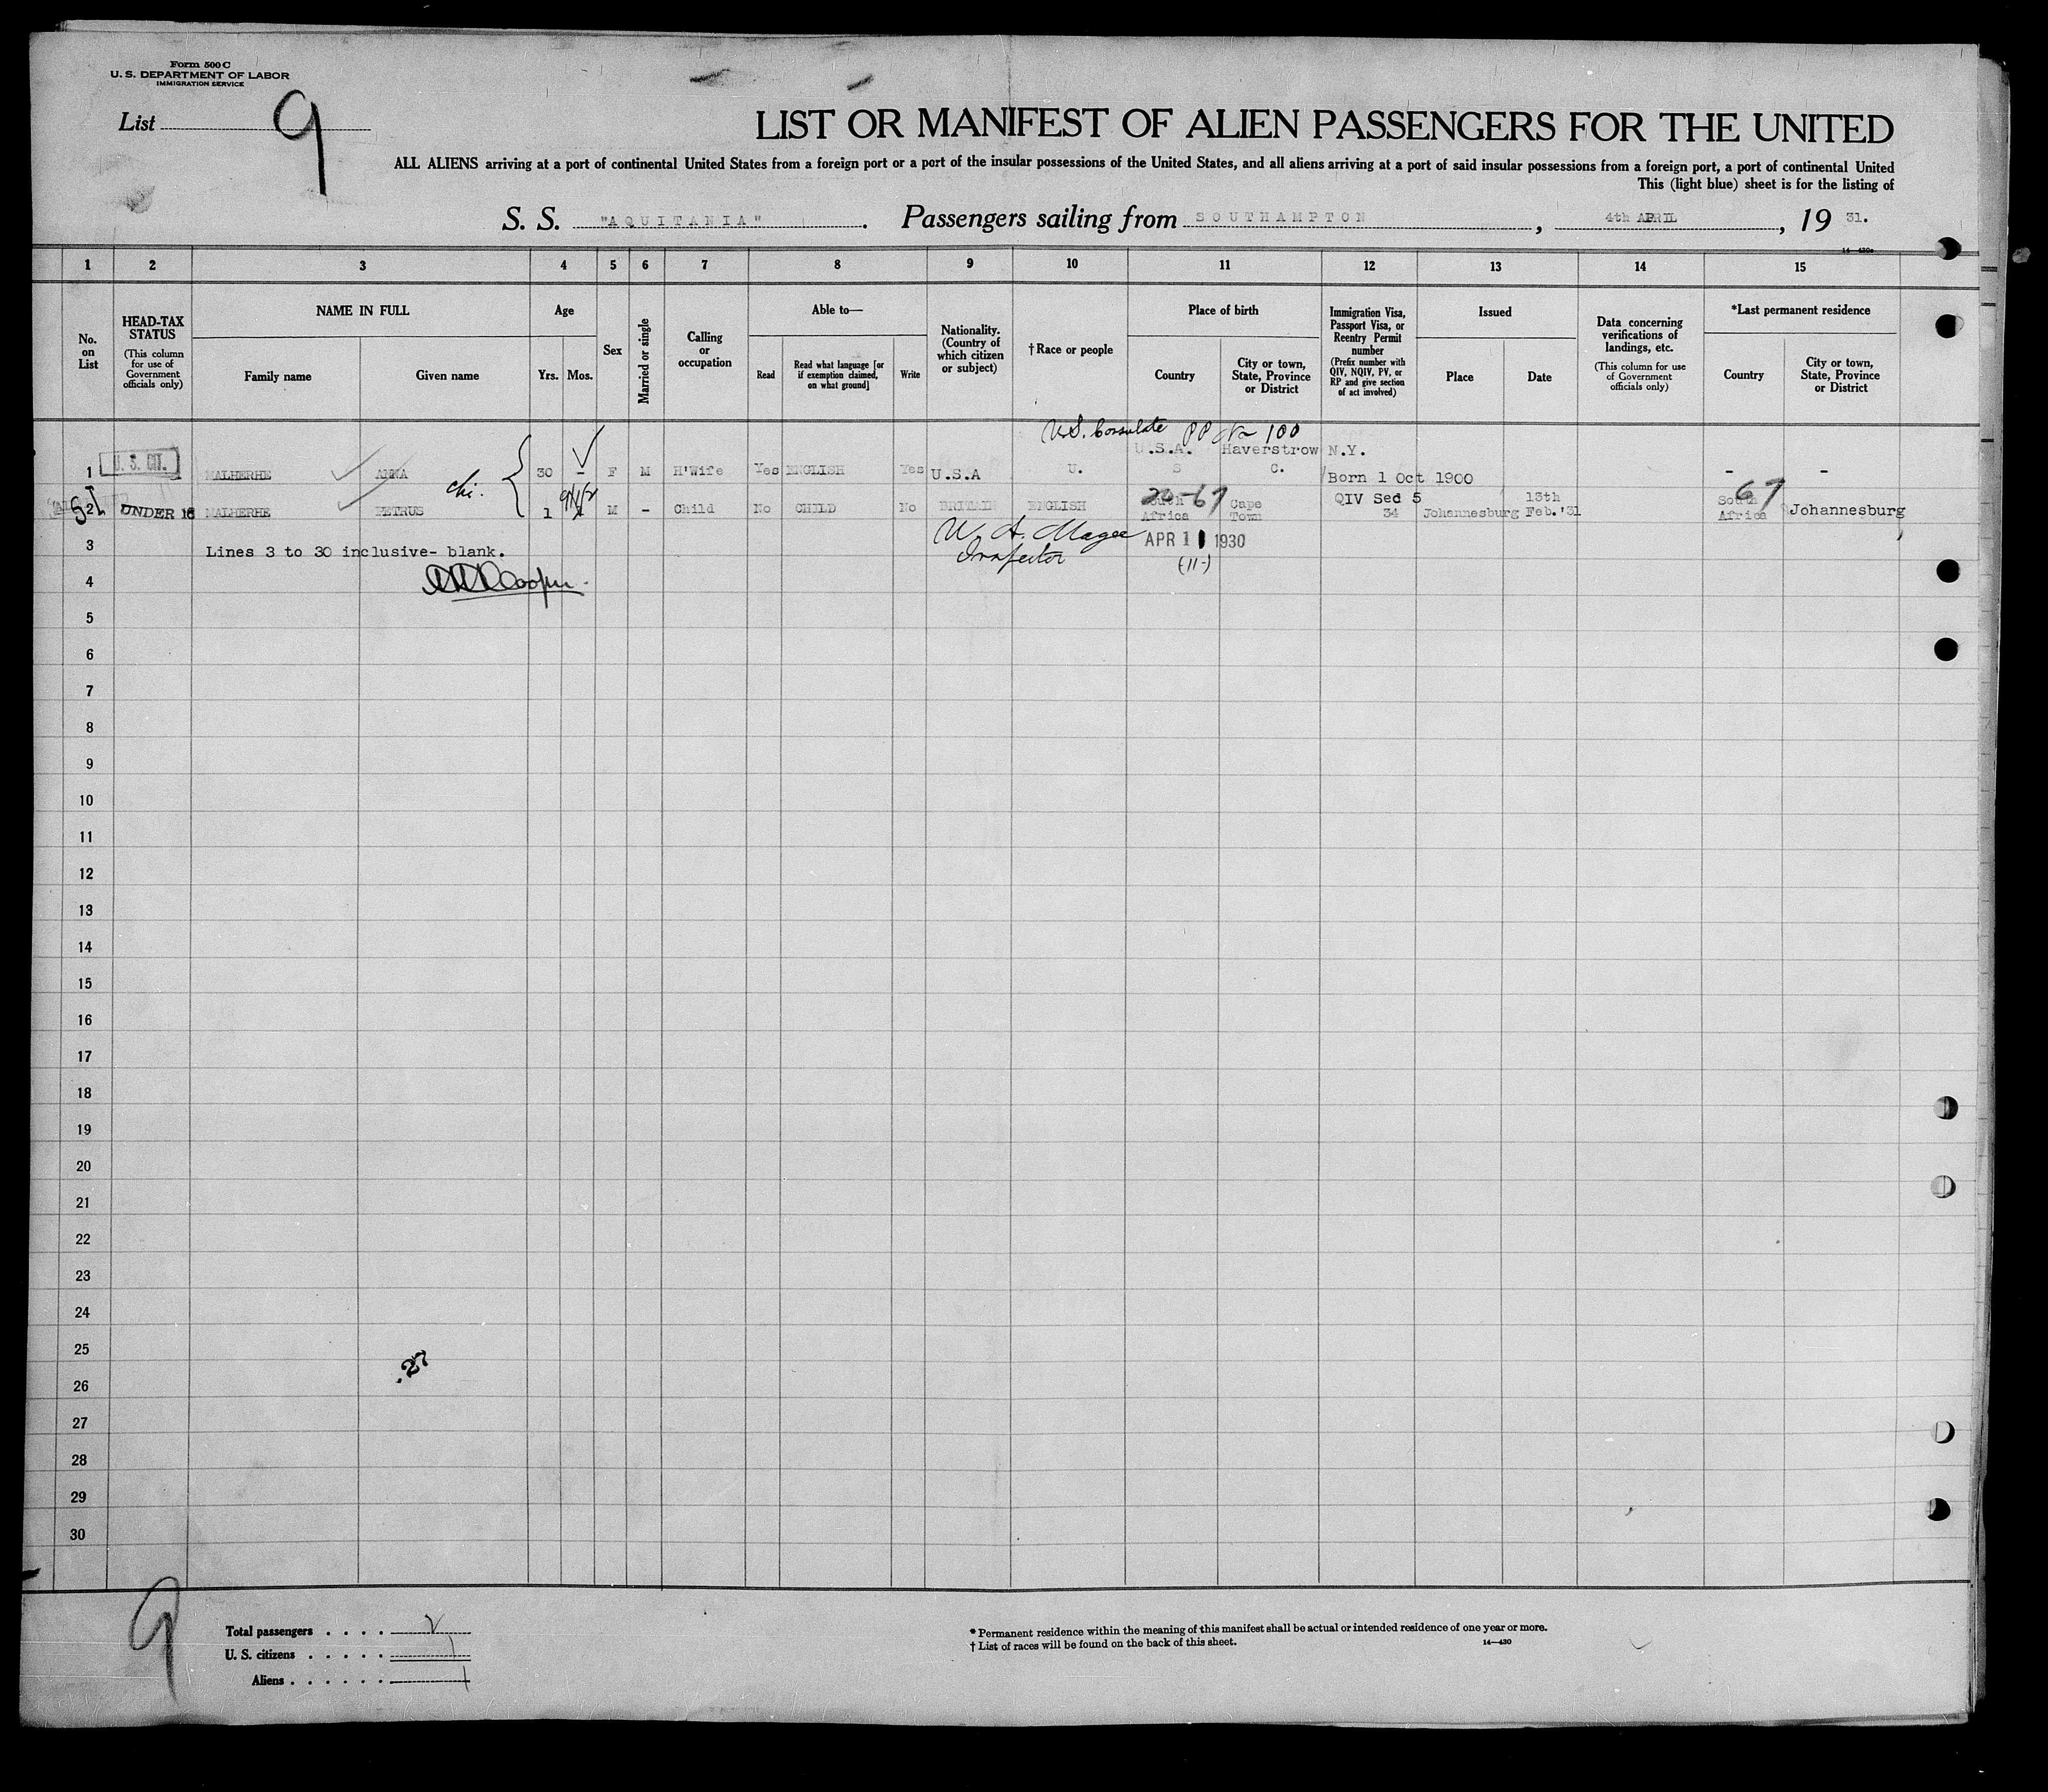 Form 500 C
U. S. DEPARTMENT OF LABOR
IMMIGRATION SERVICE
List 9
LIST OR MANIFEST OF ALIEN PASSENGERS FOR THE UNITED
ALL ALIENS arriving at a port of continental United States from a foreign port or a port of the insular possessions of the United States, and all aliens arriving at a port of said insular possessions from a foreign port, a port of continental United
This (light blue) sheet is for the listing of
S. S. "AQUITANIA". Passengers sailing from SOUTHAMPTON, 4th APRIL, 19 31.
14—430a
1 2 3 4 5 6 7 8 9 10 11 12 13 14 15
No. on List
HEAD-TAX STATUS (This column for use of Government officials only)
NAME IN FULL
Family name
Given name
Age
Yrs. Mos.
Sex
Married or single
Calling or occupation
Able to—
Read
Read what language [or if exemption claimed, on what ground]
Write
Nationality. (Country of which citizen or subject)
†Race or people
Place of birth
Country
City or town, State, Province or District
Immigration Visa, Passport Visa, or Reentry Permit number (Prefix number with QIV, NQIV, PV, or RP and give section of act involved)
Issued
Place
Date
Data concerning verifications of landings, etc. (This column for use of Government officials only)
*Last permanent residence
Country
City or town, State, Province or District
U.S. Consulate PP No 100
U.S.A. Haverstrow N.Y.
1 U. S. CIT. MALHERHE ANNA 30 - F M H'Wife Yes ENGLISH Yes U.S.A U. S C. Born 1 Oct 1900 - -
2 UNDER 16 MALHERHE PETRUS 1 M - Child No CHILD No BRITAIN ENGLISH South Africa Cape Town QIV Sec 5 34 Johannesburg 13th Feb. '31 South Africa Johannesburg
67
67
W. A. Magee
Inspector
APR 1 1930
(11-)
3 Lines 3 to 30 inclusive- blank.
4 Cooper
5
6
7
8
9
10
11
12
13
14
15
16
17
18
19
20
21
22
23
24
25
26
27
28
29
30
.27
9
Total passengers . . . . 2
U. S. citizens . . . . . 1
Aliens . . . . . . 1
* Permanent residence within the meaning of this manifest shall be actual or intended residence of one year or more.
† List of races will be found on the back of this sheet.
14—430